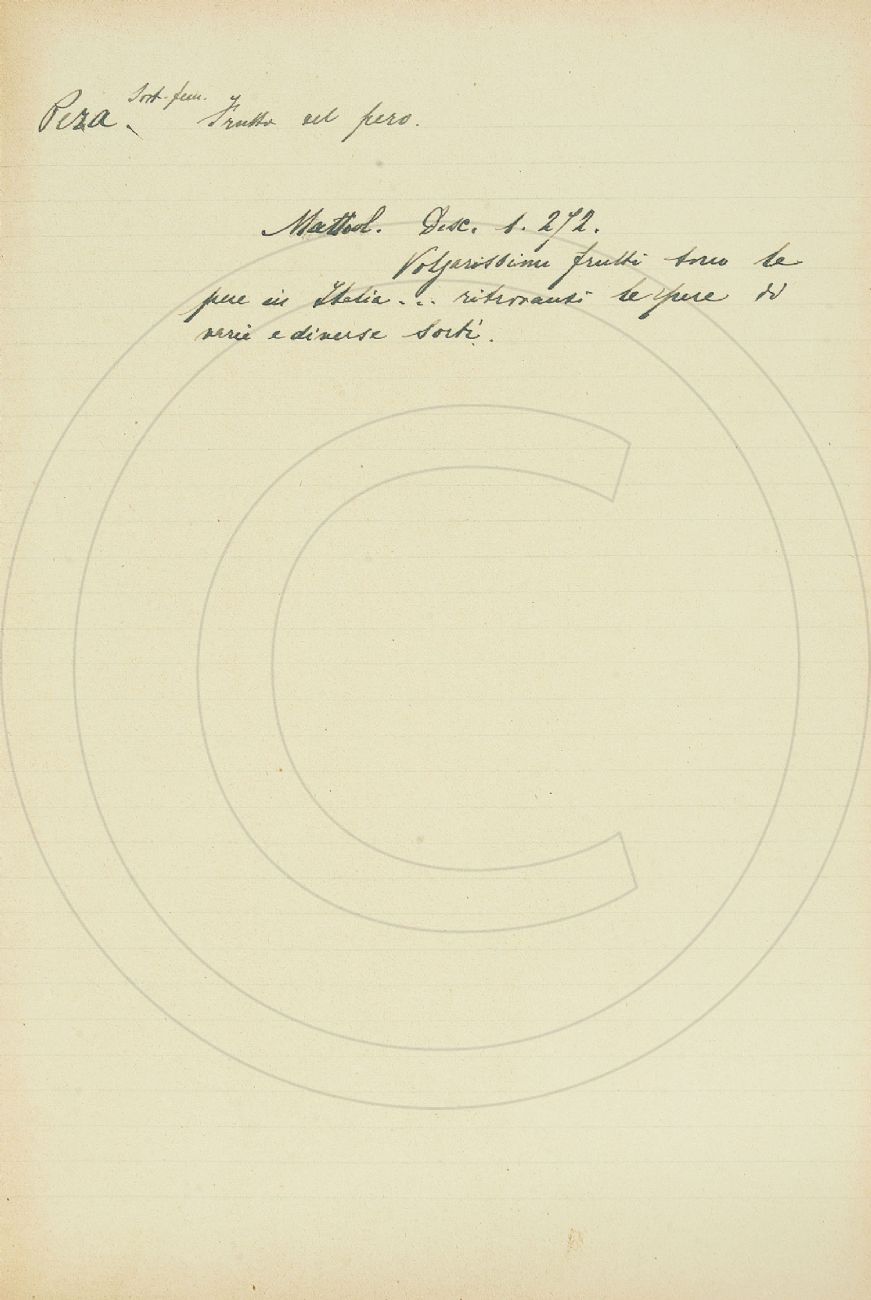 Pera. Sost. fem. Frutto del pero.
Mattiol. Disc. 1. 272.
Volgarissimi frutti sono le
pere in Italia... ritrovansi le pere di
varie e diverse sorti.